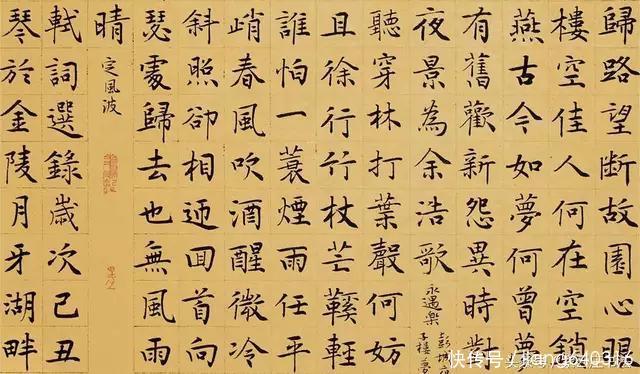 歸路望斷故園心眼
樓空佳人何在空鎖
燕古今如夢何曾夢
有舊歡新怨異時對
夜景為余浩歌 永遇樂
彭城
子樓夢
聽穿林打葉聲何妨
且徐行竹杖芒鞵輕
誰怕一蓑煙雨任平
峭春風吹酒醒微冷
斜照卻相迎回首向
瑟處歸去也無風雨
晴 定風波
軾詞選錄歲次己丑
琴於金陵月牙湖畔
快传号/liang640316